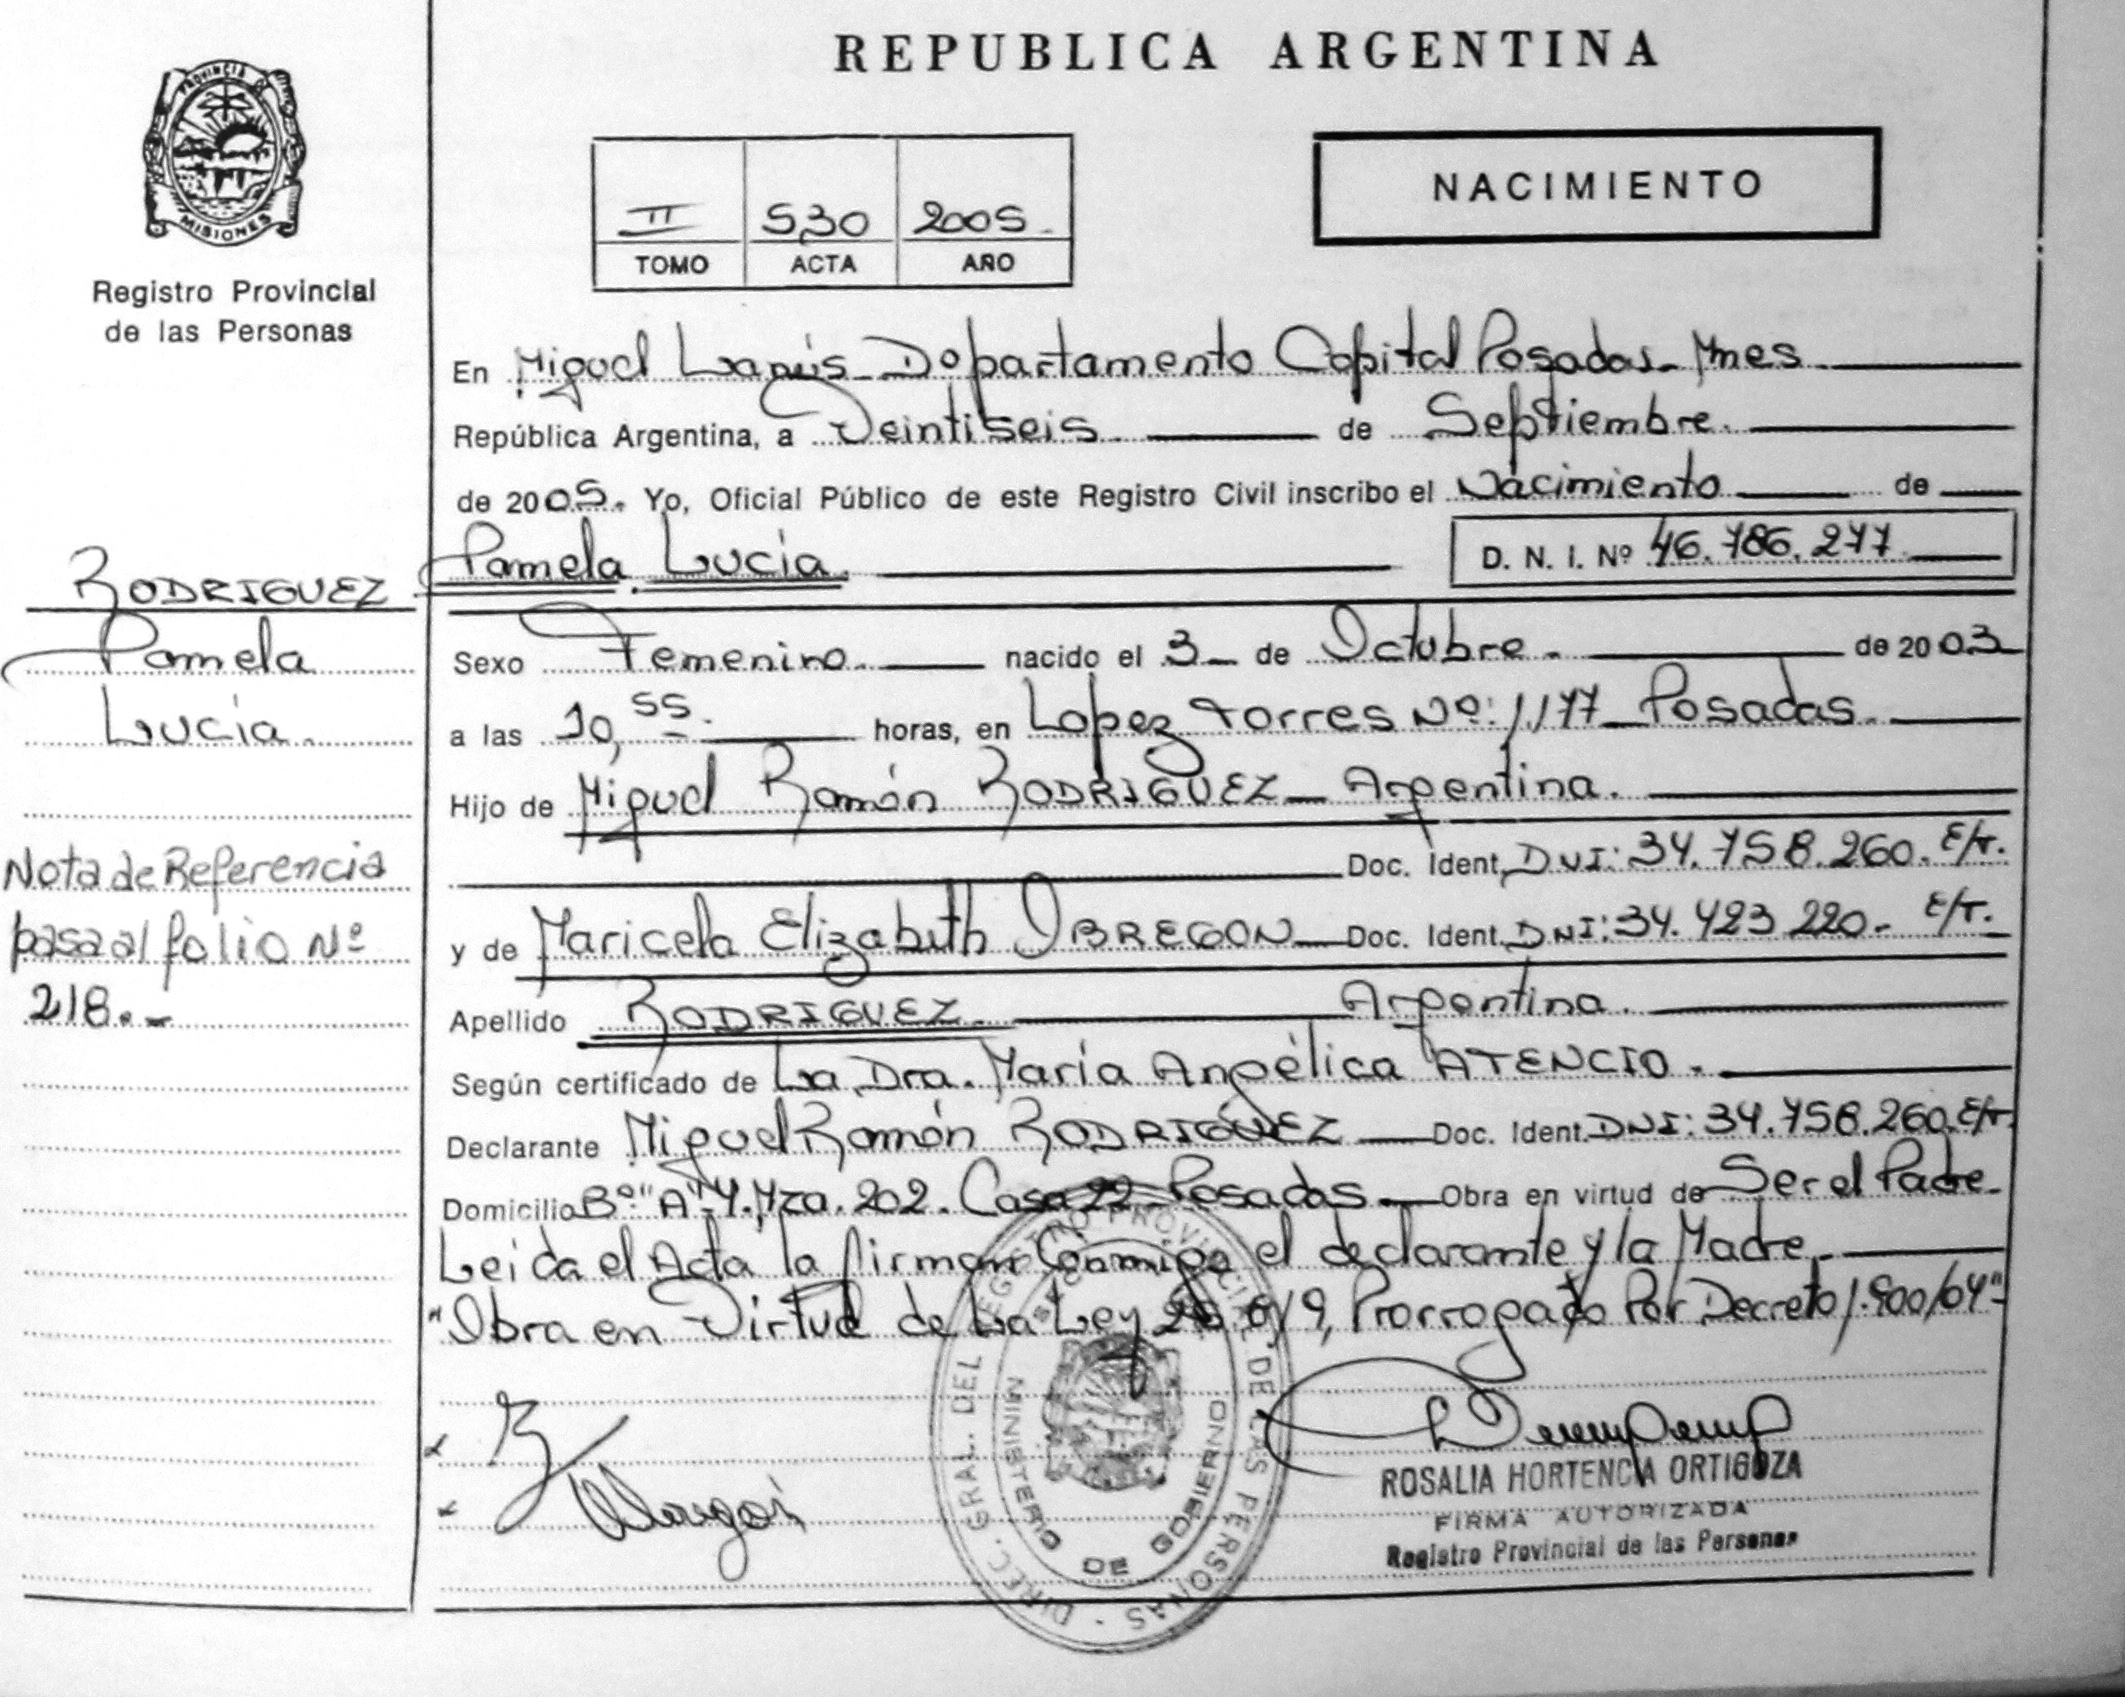 REPUBLICA ARGENTINA
PROVINCIA DE
MISIONES
Registro Provincial
de las Personas
II 530 2005
TOMO ACTA AÑO
NACIMIENTO
En Miguel Lanús - Departamento Capital Posadas - Mnes
República Argentina, a Veintiseis de Septiembre.
de 2005. Yo, Oficial Público de este Registro Civil inscribo el Nacimiento de
Pamela Lucía. D. N. I. Nº 46.786.277
RODRIGUEZ
Pamela
Lucía.
Sexo Femenino. nacido el 3 de Octubre. de 2003
a las 10,55. horas, en Lopez Torres Nº: 1.177 Posadas.
Hijo de Miguel Ramón RODRIGUEZ Argentina.
Doc. Ident. DNI: 34.758.260. E/T.
y de Maricela Elizabeth OBREGON Doc. Ident. DNI: 34.423 220.- E/T.
Apellido RODRIGUEZ. Argentina.
Según certificado de La Dra. María Angélica ATENCIO.
Declarante Miguel Ramón RODRIGUEZ Doc. Ident. DNI: 34.758.260. E/T.
Domicilio Bº "A" 4. Mza. 202. Casa 22 Posadas. Obra en virtud de Ser el Padre.
Leida el Acta la firman Conmigo el declarante y la Madre.
"Obra en Virtud de La Ley Prorrogado Por Decreto 1.900/04"
Nota de Referencia
pasa al folio Nº
218.-
ROSALIA HORTENCIA ORTIGOZA
FIRMA AUTORIZADA
Registro Provincial de las Personas
DIREC. GRAL. DEL REGISTRO PROVINCIAL DE LAS PERSONAS
MINISTERIO DE GOBIERNO